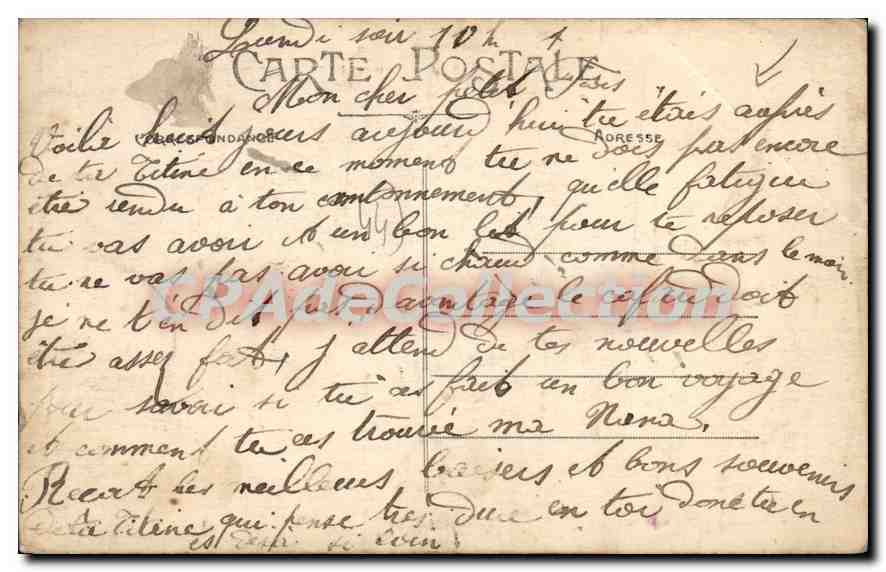 Lundi soir 10h
CARTE POSTALE
Mon cher petit
CORRESPONDANCE
ADRESSE
Voilà huit jours aujourd'hui tu étais auprès
de ta Titine en ce moment tu ne dois pas encore
être rendu à ton cantonnement, qu'elle fatigue
tu vas avoir et un bon lit pour te reposer
tu ne vas pas avoir si chaud comme dans le mien
je ne t'en dit pas d'avantage le cafard doit
être assez fort, j'attend de tes nouvelles
pour savoir si tu as fait un bon voyage
et comment tu as trouvé ma Nana.
Recoit les meilleurs baisers et bons souvenirs
de ta Titine qui pense très dure en toi dont tu en
es si loin
CPAdeCollection